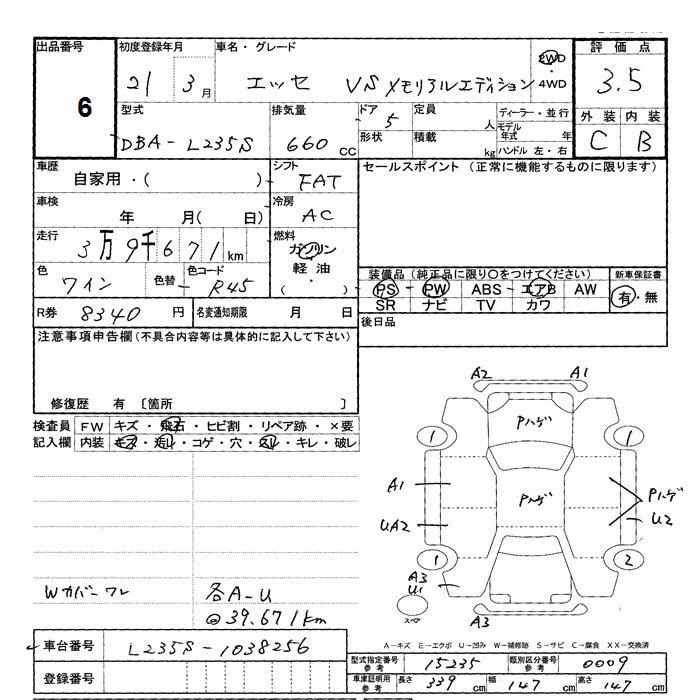 出品番号 初度登録年月 車名・グレード 評価点
6 21 3月 エッセ VSメモリアルエディション 2WD・4WD 3.5
型式 排気量 ドア 定員 ディーラー・並行 外装 内装
DBA-L235S 660cc 5 人 モデル年式 年 C B
形状 積載 kg ハンドル 左・右
車歴 シフト セールスポイント (正常に機能するものに限ります)
自家用・( ) FAT
車検 冷房
年 月( 日) AC
走行 燃料
3万9千671km ガソリン
色 色替 色コード 軽油
ワイン R45 ・( )
装備品(純正品に限り○をつけてください) 新車保証書
PS PW ABS エアB AW 有・無
SR ナビ TV カワ
R券 8340円 名変通知期限 月 日 後日品
注意事項申告欄(不具合内容等は具体的に記入して下さい)
修復歴 有 〔箇所 〕
検査員 FW キズ・飛石・ヒビ割・リペア跡・×要
記入欄 内装 キズ・汚レ・コゲ・穴・スレ・キレ・破レ
A2 A1
Pハゲ
1 1
A1 Pハゲ Pハゲ
UA2 U2
1 2
A3
U1
スペア A3
Wカバーワレ 各A-U
◎39.671km
A-キズ E-エクボ U-凹み W-補修跡 S-サビ C-腐食 XX-交換済
車台番号 L235S-1038256
型式指定番号 参考 15235 類別区分番号 参考 0009
登録番号
車庫証明用 参考 長さ 339cm 幅 147cm 高さ 147cm